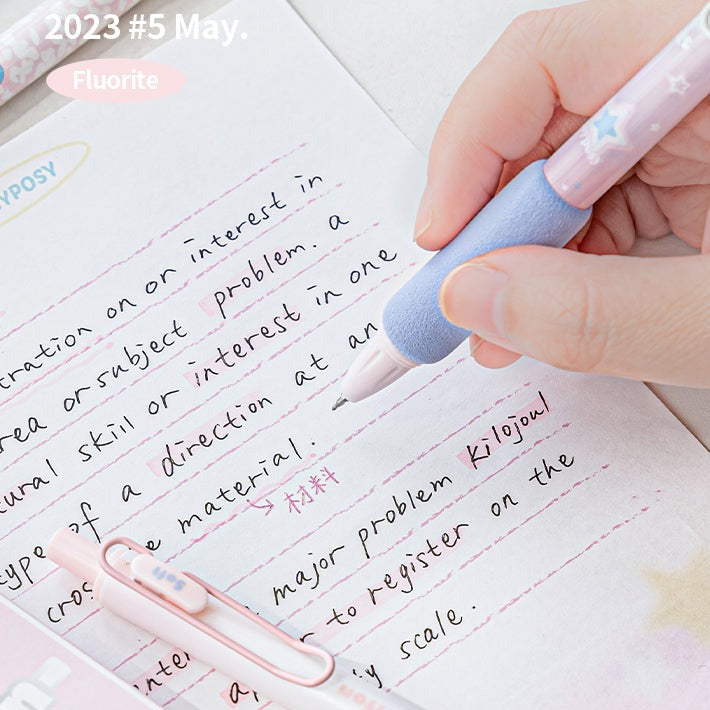 2023 #5 May.
Fluorite
YPOSY
tration on or interest in
rea or subject problem. a
ural skill or interest in one
type of a direction at an
cros e material.
材料
major problem kilojoul
r to register on the
inter y scale.
ap
Soft